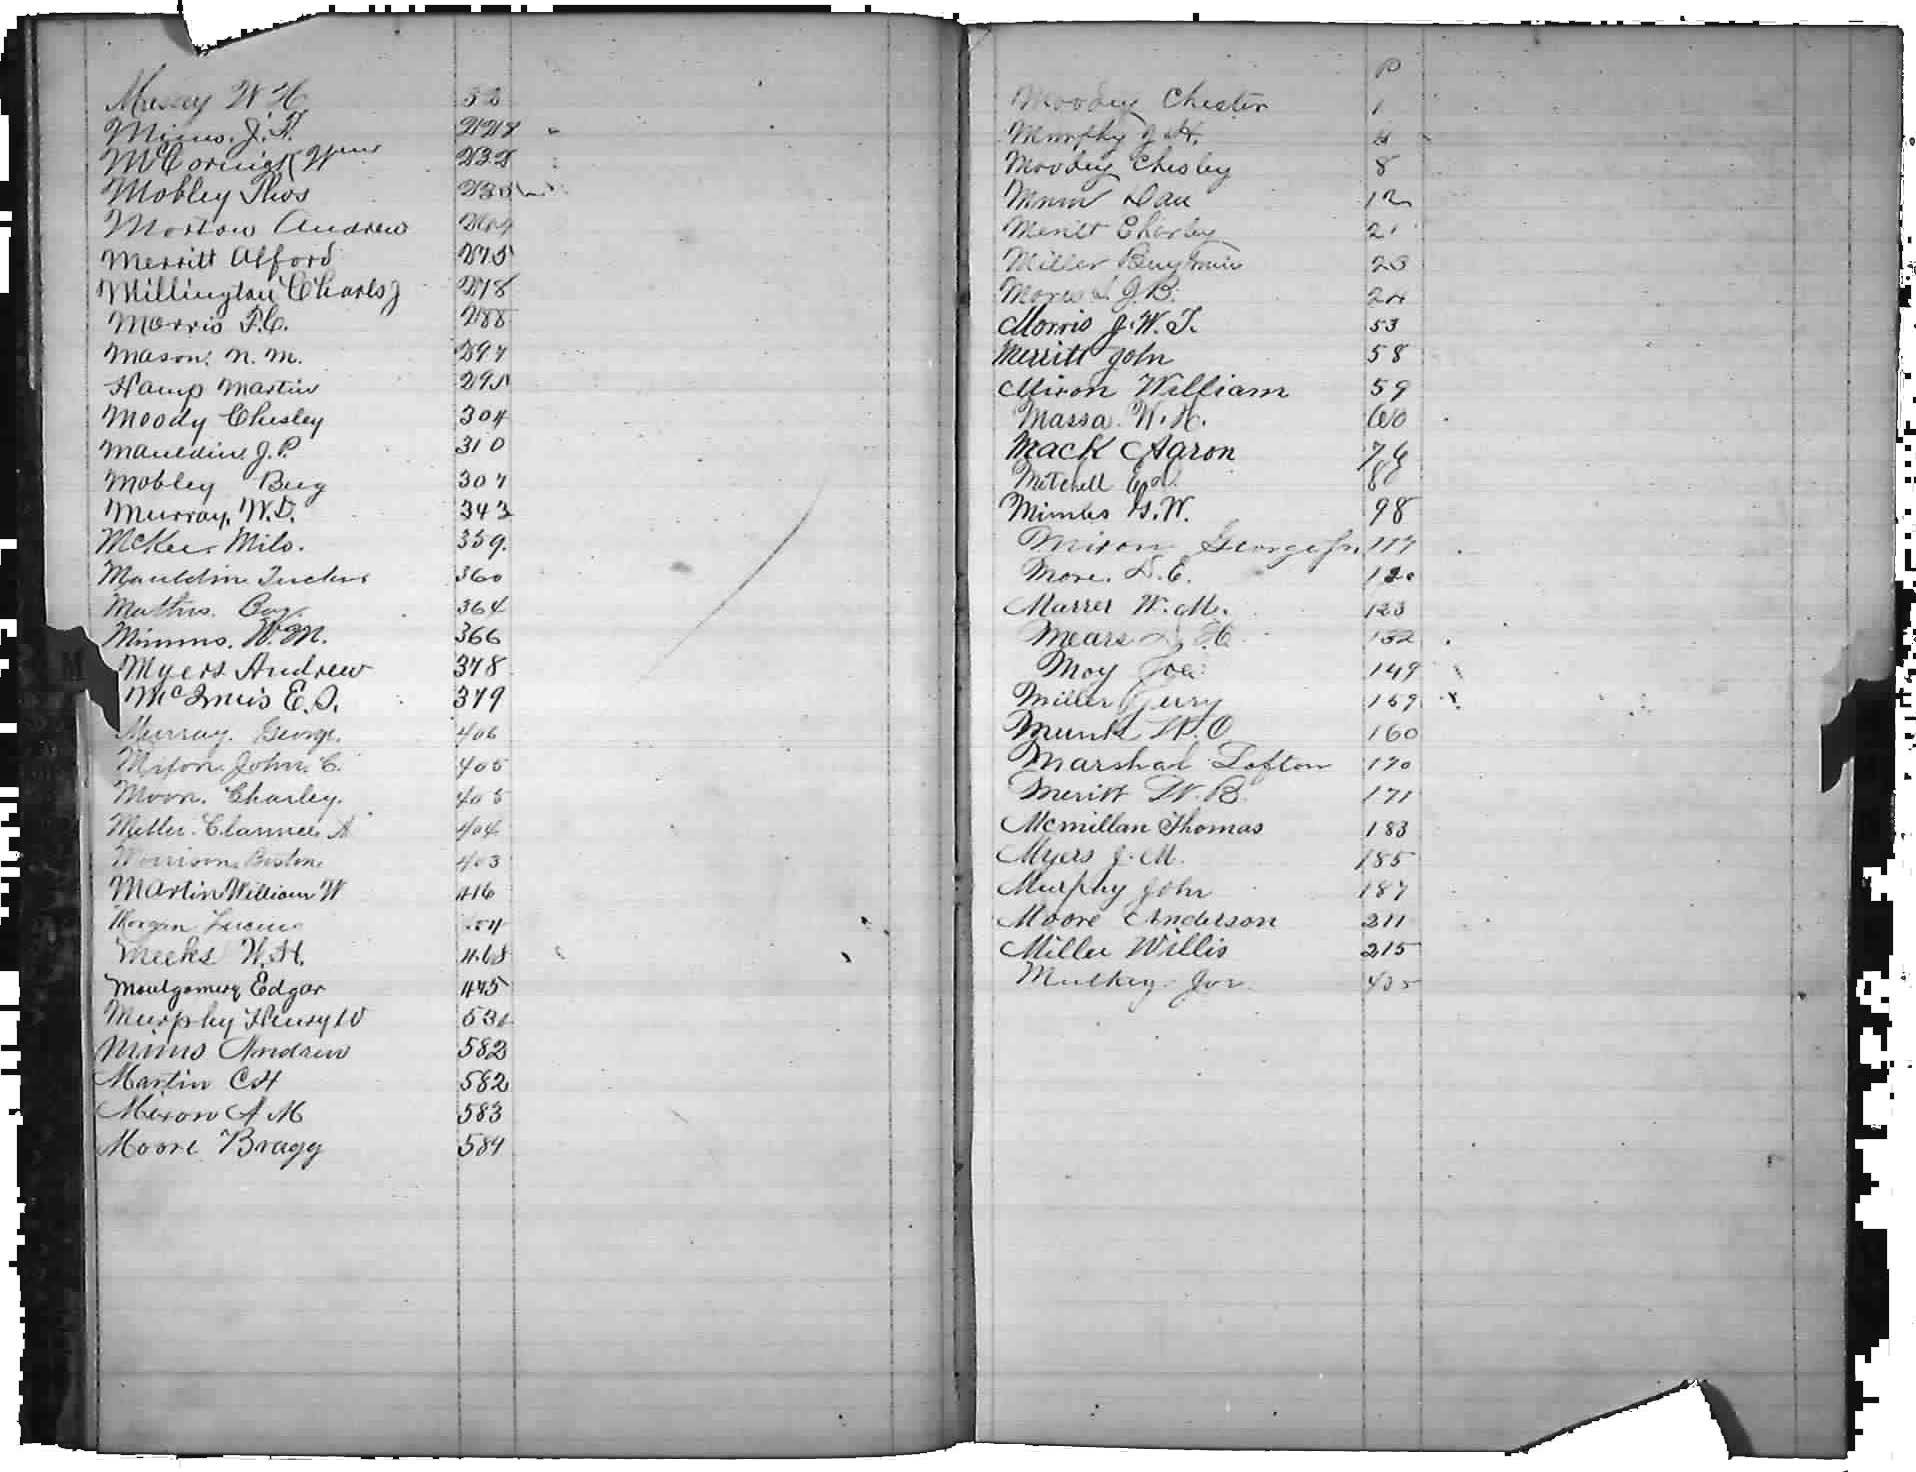 Massey W H 32
Mims, J. F. 228
McCornick Wm 232
Mobley Thos
Morton Andrew 264
Merritt Alford 275
Millington Charls J 278
Morris F. C. 288
Mason, N. M. 297
Hamp Martin 295
Moody Chesley 304
Mauldin J. P. 310
Mobley Beg 307
Murray, W. D. 343
McKee, Milo. 359.
Mauldin Tucker 360
Mathis. Coy. 364
Mimms, W. M. 366
Myers Andrew 378
McInnis E. S. 379
Murray. George. 406
Mixon. John. C. 405
Moon. Charley. 405
Miller. Clarence A 404
Morrison, Boston 403
Martin William W 416
Morgan Lucius
Meeks W. H. 468
Montgomery Edgar 475
Murphy Henry W 531
Mims Andrew 582
Martin C H 582
Mixon A M 583
Moore Bragg 584
P
Moody Chester 1
Murphy J. H. 4
Moody Chesley 8
Mimm Dan 12
Meritt Charley 21
Miller Benjamin 23
J. B. 24
Morris J. W. T. 53
Merritt John 58
Mixon William 59
Massa. W. H. 60
Mack Aaron 76
Mitchell Ed.
Mimbs G. W. 98
Mixon George Jr. 117
More. D. C. 120
Marrer W. M. 123
Mears 132
Moy Joe 149
Miller Jerry 159
Munk W. O 160
Marshal Lofton 170
Meritt W. B. 171
Mcmillan Thomas 183
Myers J. M. 185
Murphy John 187
Moore Anderson 211
Miller Willis 215
Mulkey Joe 435